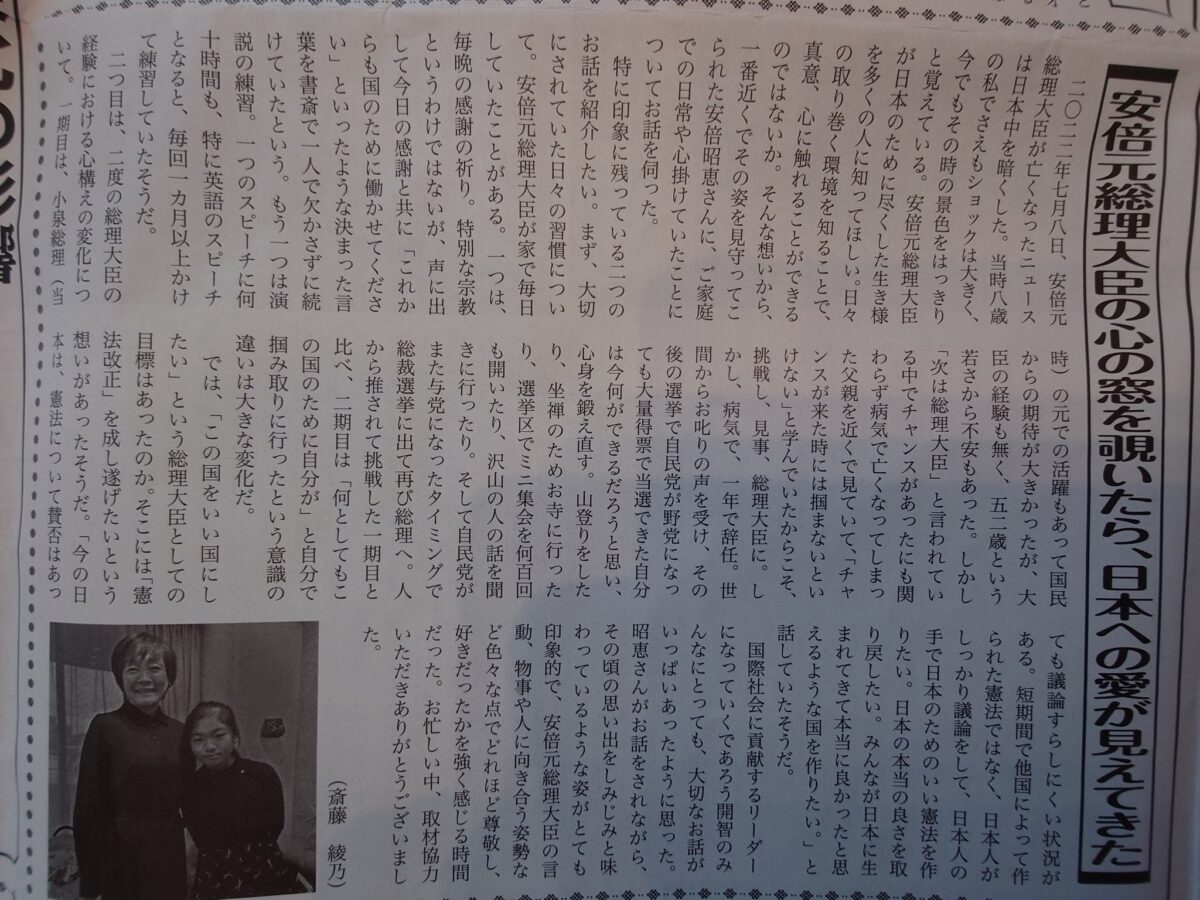 【安倍元総理大臣の心の窓を覗いたら、日本への愛が見えてきた】
二〇二二年七月八日、安倍元
総理大臣が亡くなったニュース
は日本中を暗くした。当時八歳
の私でさえもショックは大きく、
今でもその時の景色をはっきり
と覚えている。安倍元総理大臣
が日本のために尽くした生き様
を多くの人に知ってほしい。日々
の取り巻く環境を知ることで、
真意、心に触れることができる
のではないか。そんな想いから、
一番近くでその姿を見守ってこ
られた安倍昭恵さんに、ご家庭
での日常や心掛けていたことに
ついてお話を伺った。
特に印象に残っている二つの
お話を紹介したい。まず、大切
にされていた日々の習慣につい
て。安倍元総理大臣が家で毎日
していたことがある。一つは、
毎晩の感謝の祈り。特別な宗教
というわけではないが、声に出
して今日の感謝と共に「これか
らも国のために働かせてくださ
い」といったような決まった言
葉を書斎で一人で欠かさずに続
けていたという。もう一つは演
説の練習。一つのスピーチに何
十時間も、特に英語のスピーチ
となると、毎回一カ月以上かけ
て練習していたそうだ。
二つ目は、二度の総理大臣の
経験における心構えの変化につ
いて。一期目は、小泉総理（当
時）の元での活躍もあって国民
からの期待が大きかったが、大
臣の経験も無く、五二歳という
若さから不安もあった。しかし
「次は総理大臣」と言われてい
る中でチャンスがあったにも関
わらず病気で亡くなってしまっ
た父親を近くで見ていて、「チャ
ンスが来た時には掴まないとい
けない」と学んでいたからこそ、
挑戦し、見事、総理大臣に。し
かし、病気で、一年で辞任。世
間からお叱りの声を受け、その
後の選挙で自民党が野党になっ
ても大量得票で当選できた自分
は今何ができるだろうと思い、
心身を鍛え直す。山登りをした
り、坐禅のためお寺に行った
り、選挙区でミニ集会を何百回
も開いたり、沢山の人の話を聞
きに行ったり。そして自民党が
また与党になったタイミングで
総裁選挙に出て再び総理へ。人
から推されて挑戦した一期目と
比べ、二期目は「何としてもこ
の国のために自分が」と自分で
掴み取りに行ったという意識の
違いは大きな変化だ。
では、「この国をいい国にし
たい」という総理大臣としての
目標はあったのか。そこには「憲
法改正」を成し遂げたいという
想いがあったそうだ。「今の日
本は、憲法について賛否はあっ
ても議論すらしにくい状況が
ある。短期間で他国によって作
られた憲法ではなく、日本人が
しっかり議論をして、日本人の
手で日本のためのいい憲法を作
りたい。日本の本当の良さを取
り戻したい。みんなが日本に生
まれてきて本当に良かったと思
えるような国を作りたい。」と
話していたそうだ。
国際社会に貢献するリーダー
になっていくであろう開智のみ
んなにとっても、大切なお話が
いっぱいあったように思った。
昭恵さんがお話をされながら、
その頃の思い出をしみじみと味
わっているような姿がとても
印象的で、安倍元総理大臣の言
動、物事や人に向き合う姿勢な
ど色々な点でどれほど尊敬し、
好きだったかを強く感じる時間
だった。お忙しい中、取材協力
いただきありがとうございまし
た。
（斎藤　綾乃）